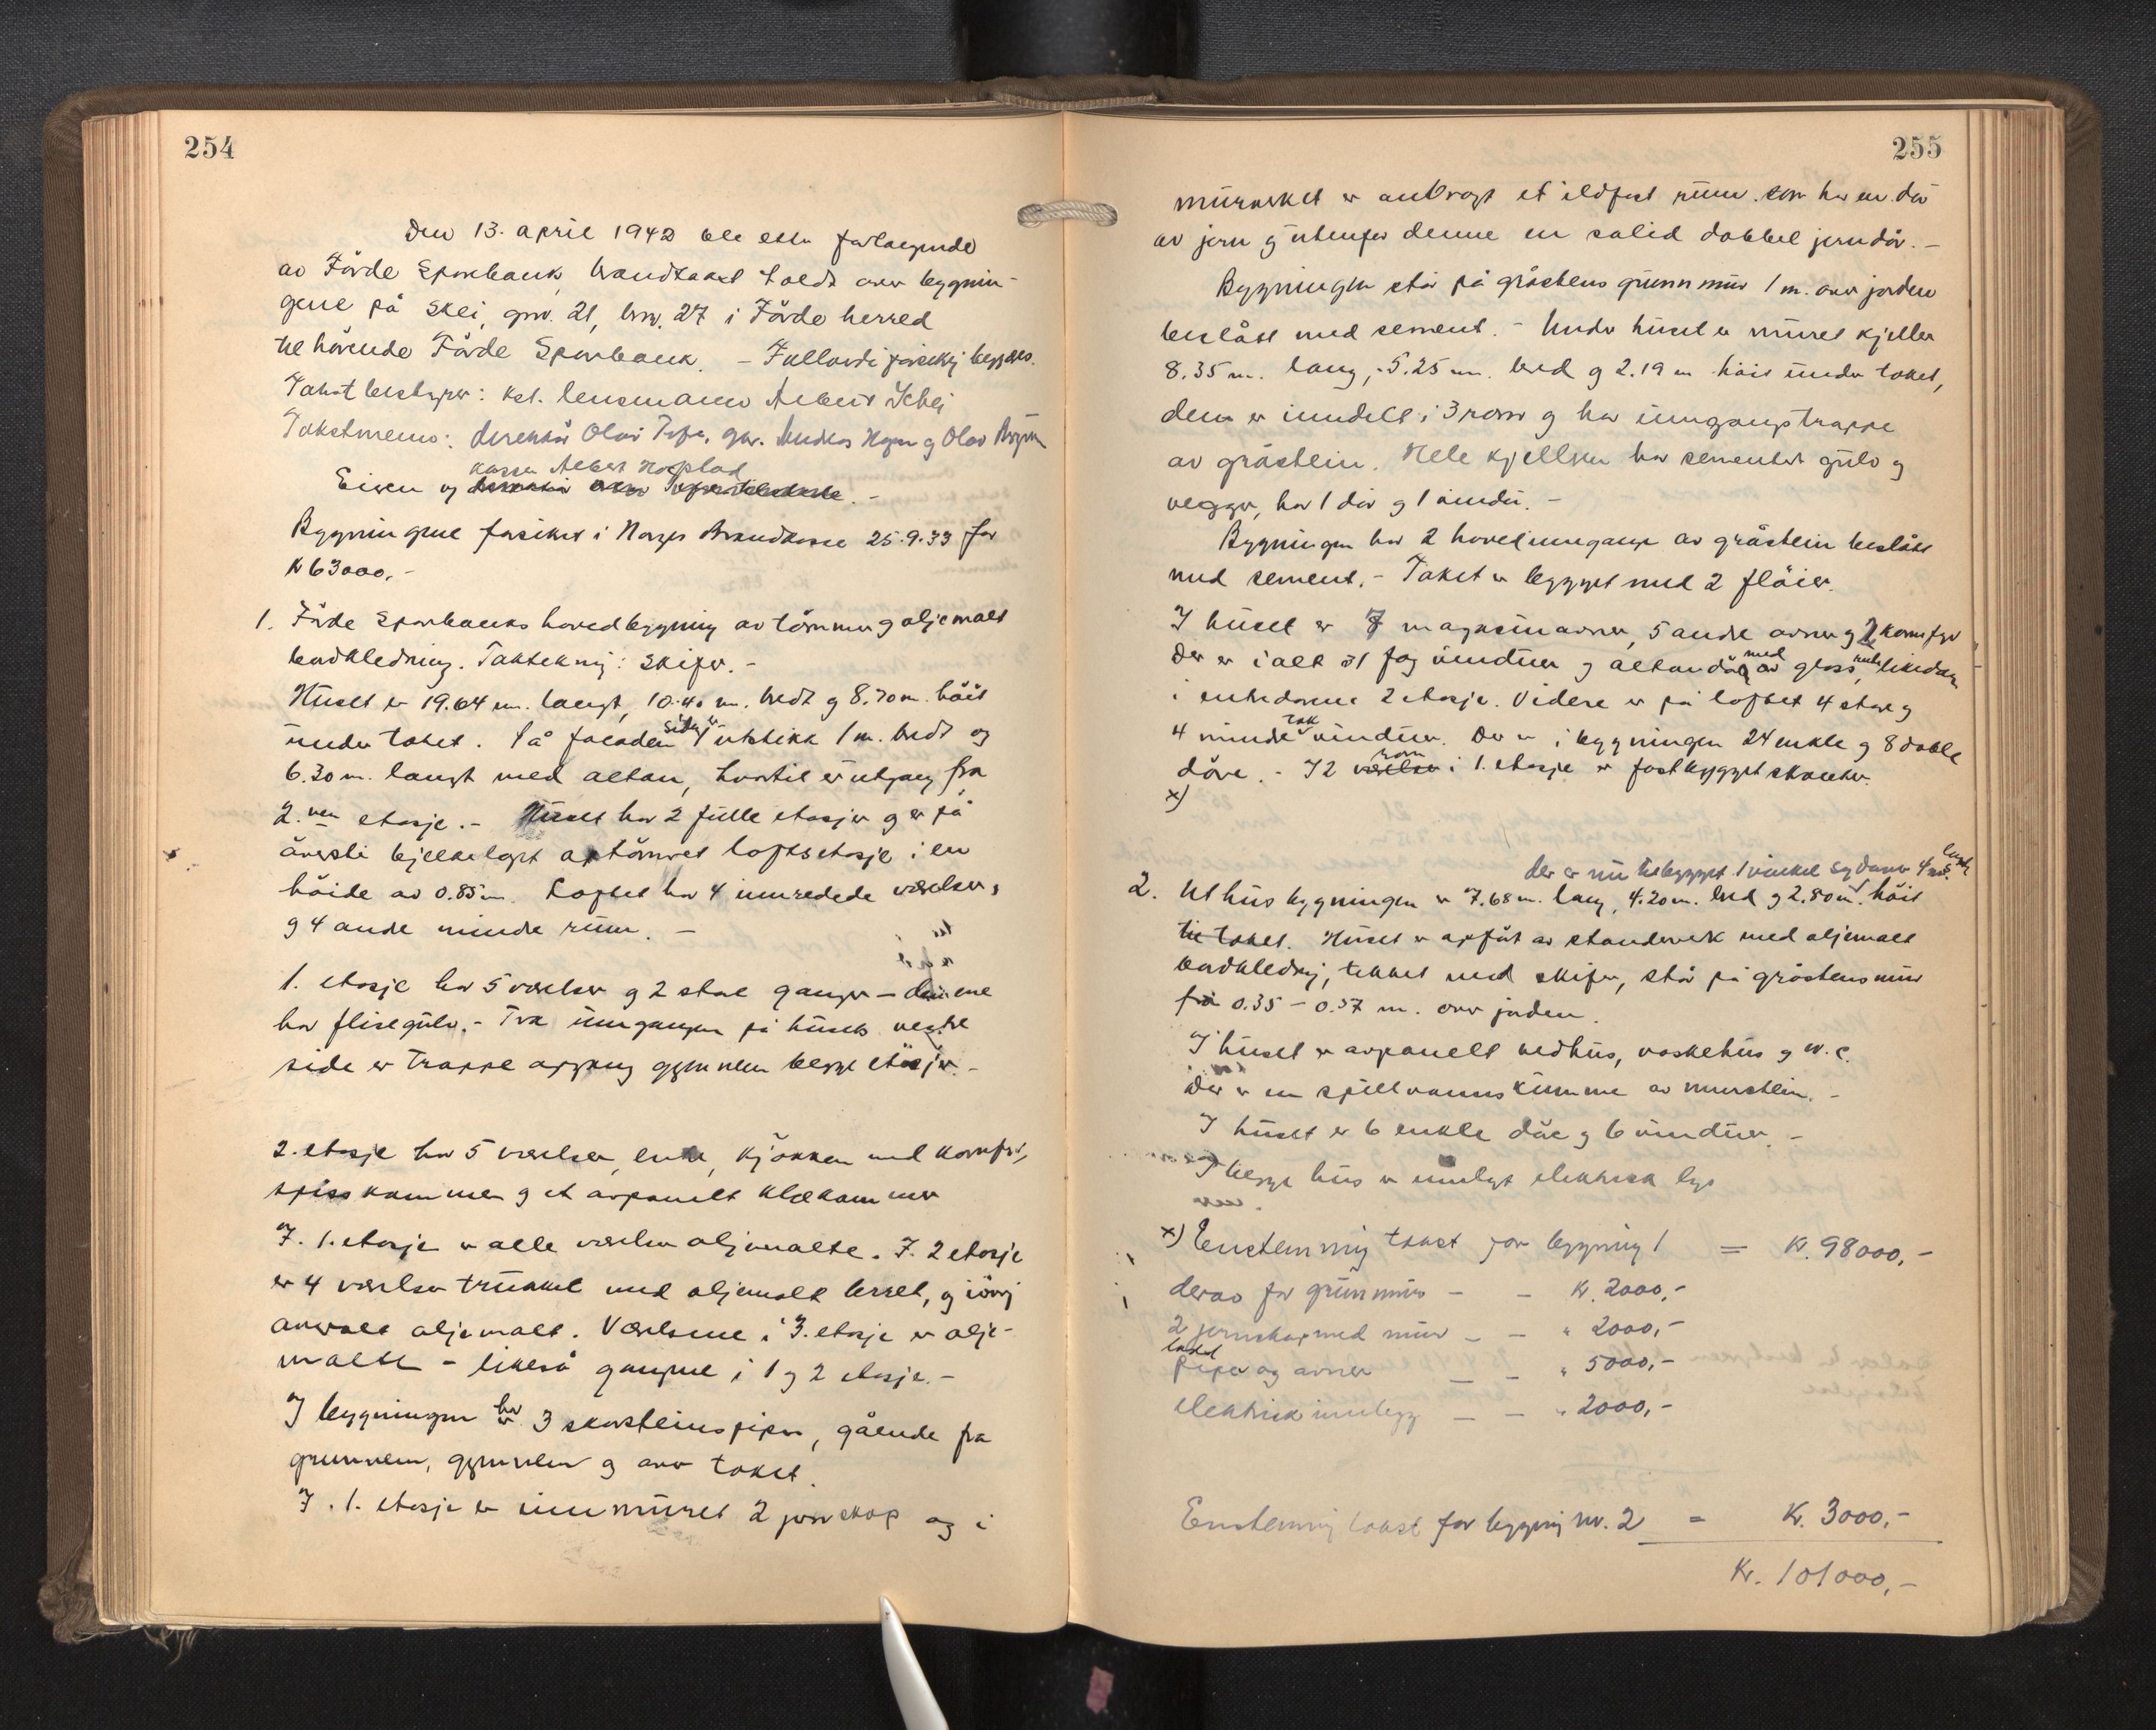 254
Den 13. april 1942 ble etter forlangende
av Förde Sparebank, brandtakst holdt over bygnin-
gene på Skei, gnr. 21, brnr. 27 i Förde herred
tilhörende Förde Sparebank. – Fullverdiforsikr. begjæres.
Takstbestyrer: kst. lensmann
Takstmenn: Olav
kasser Albert Hopland
Eieren og
Bygningene forsikret i Norges Brandkasse 25.9.33 for
Kr 63000,-
1. Förde Sparebanks hovedbygning av tömmer og oljemalt
bordkledning. Taktekning: Skifer. –
Huset er 19.64 m. langt, 10.40 m. bredt og 8.70 m. höit
under taket. På facaden side er utstikk 1 m. bredt og
6.30 m. langt med altan, hvortil er utgang fra
2.nen etasje. – Huset har 2 fulle etasjer og er på
översti bjelkelaget optömret loftsetasje i en
höide av 0.85 m. Loftet har 4 innredede værelser,
og 4 andre mindre rum. –
1. etasje har 5 værelser og 2 store ganger – denne
har flisegulv. – Fra inngangen på husets vestre
side er trappe opgang gjennem begge etasjer. –
2. etasje har 5 værelser, entre, kjökken med komfyr,
spisskammer og et avpanelt klækammer
I. 1. etasje er alle værelser oljemalte. I. 2 etasje
er 4 værelser trukket med oljemalt lerret, og iövrig
overalt oljemalt. Værelsene i 3. etasje er olje-
malte – likeså gangene i 1 og 2 etasje. –
I bygningen har er 3 skorsteinspiper, gående fra
grunnen, gjennem og over taket.
I. 1. etasje er innmuret 2 jernskap og i
255
murverket er anbragt et ildfast rum som har en dör
av jern og utenfor denne en solid dobbel jerndör. –
Bygningen står på gråstens grunnmur 1 m. over jorden
beslått med sement. – Under huset er muret kjeller
8.35 m. lang, 5.25 m. bred og 2.19 m höi under taket,
den er inndelt i 3 rom og har inngangstrappe
av gråstein. Hele kjelleren har sementert gulv og
vegger, har 1 dör og 1 vindu. –
Bygningen har 2 hovedinnganger av gråstein beslått
med sement. – Taket er bygget med 2 flöier.
I huset er 7 magasinovner, 5 andre ovner og 2 komfyr
Der er i alt 31 fag vinduer og altandör med av glass, likedan
i 2 etasje. Videre er på loftet 4 store og
4 mindre tak vinduer. Der er i bygningen 24 enkle og 8 doble
döre. – I 2 værelser rom i 1. etasje er fastbygget skranker.
x)
der er nu tilbygget 1 vinkel syd 4 m. lengde
2. Uthusbygningen er 7.68 m. lang, 4.20 m. bred og 2.80 m. höit
til taket. Huset er opfört av standerverk med oljemalt
bordkledning, tekket med skifer, står på gråstensmur
fra 0.35 – 0.57 m. over jorden.
I huset er avpanelt vedhus, vaskehus og w.c.
Der er en spillvannskumme av murstein. –
I huset er 6 enkle döre og 6 vinduer. –
I begge hus er innlagt elektrisk lys
x) Enstemmig takst for bygning 1 = Kr. 98000,-
derav for grunnmur – – Kr. 2000,-
2 jernskap med mur – – " 2000,-
piper og ovner – – " 5000,-
elektrisk innlegg – – " 2000,-
Enstemmig takst for bygning nr. 2 = Kr. 3000,-
Kr. 101000,-